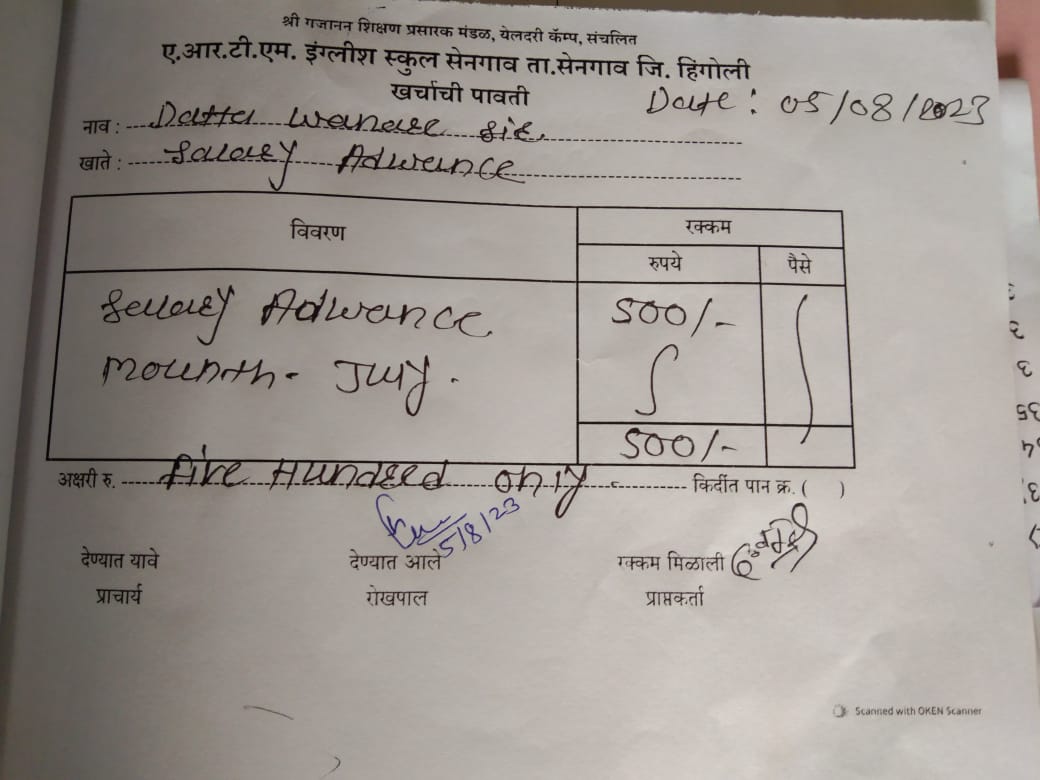 श्री गजानन शिक्षण प्रसारक मंडळ, येलदरी कॅम्प, संचलित
ए.आर.टी.एम. इंग्लीश स्कुल सेनगाव ता.सेनगाव जि. हिंगोली
खर्चाची पावती
Date : 05/08/2023
नाव : Datta wanare sir.
खाते : Salary Adwance
विवरण रक्कम
रुपये पैसे
Salary Adwance 500/-
Mounth - July.
500/-
अक्षरी रु. Five Hundred only - किर्दीत पान क्र. ( )
5/8/23
देण्यात यावे देण्यात आले रक्कम मिळाली
प्राचार्य रोखपाल प्राप्तकर्ता
Scanned with OKEN Scanner